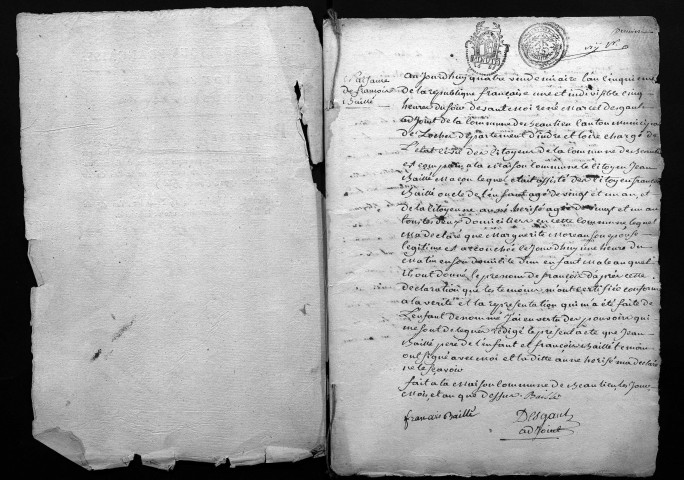 Naissance
de françois
Baillé
aujourdhuy quatre vendemiaire l'an cinquieme
de la republique françoise une et indivisible cinq
heures du soir devant moi rené marcel desgault
adjoint de la commune de Beaulieu canton municipal
de Loches departement d'indre et loire chargé de
l'état civil des citoyens de la commune de Beaulieu
est comparu a la maison commune le citoyen Jean
Baillé maçon lequel etait assisté des citoyen françois
Baillé oncle de l'enfant agé de vingt et un an, et
de la citoyenne anne herisé agée de vingt et un an
tous les deux domiciliers en cette commune, lequel
m'a declaré que marguerite moreau son epouse
legitime est accouchée le jourdhuy une heure du
matin en son domicile d'un enfant male auquel
ils ont donné le prenom de françois d'après cette
declaration que les temoins m'ont certifié conforme
a la verité et la representation qui m'a été faite de
l'enfant denommé j'ai en vertu des pouvoirs qui
me sont delegués rédigé le present acte que Jean
Baillé pere de l'enfant et françois Baillé temoin
ont signé avec moi et la ditte anne herisé m'a declaré
ne le sçavoir
fait a la maison commune de Beaulieu les jour
mois, et an que dessus. Baillé
françois Baillé Desgault
adjoint